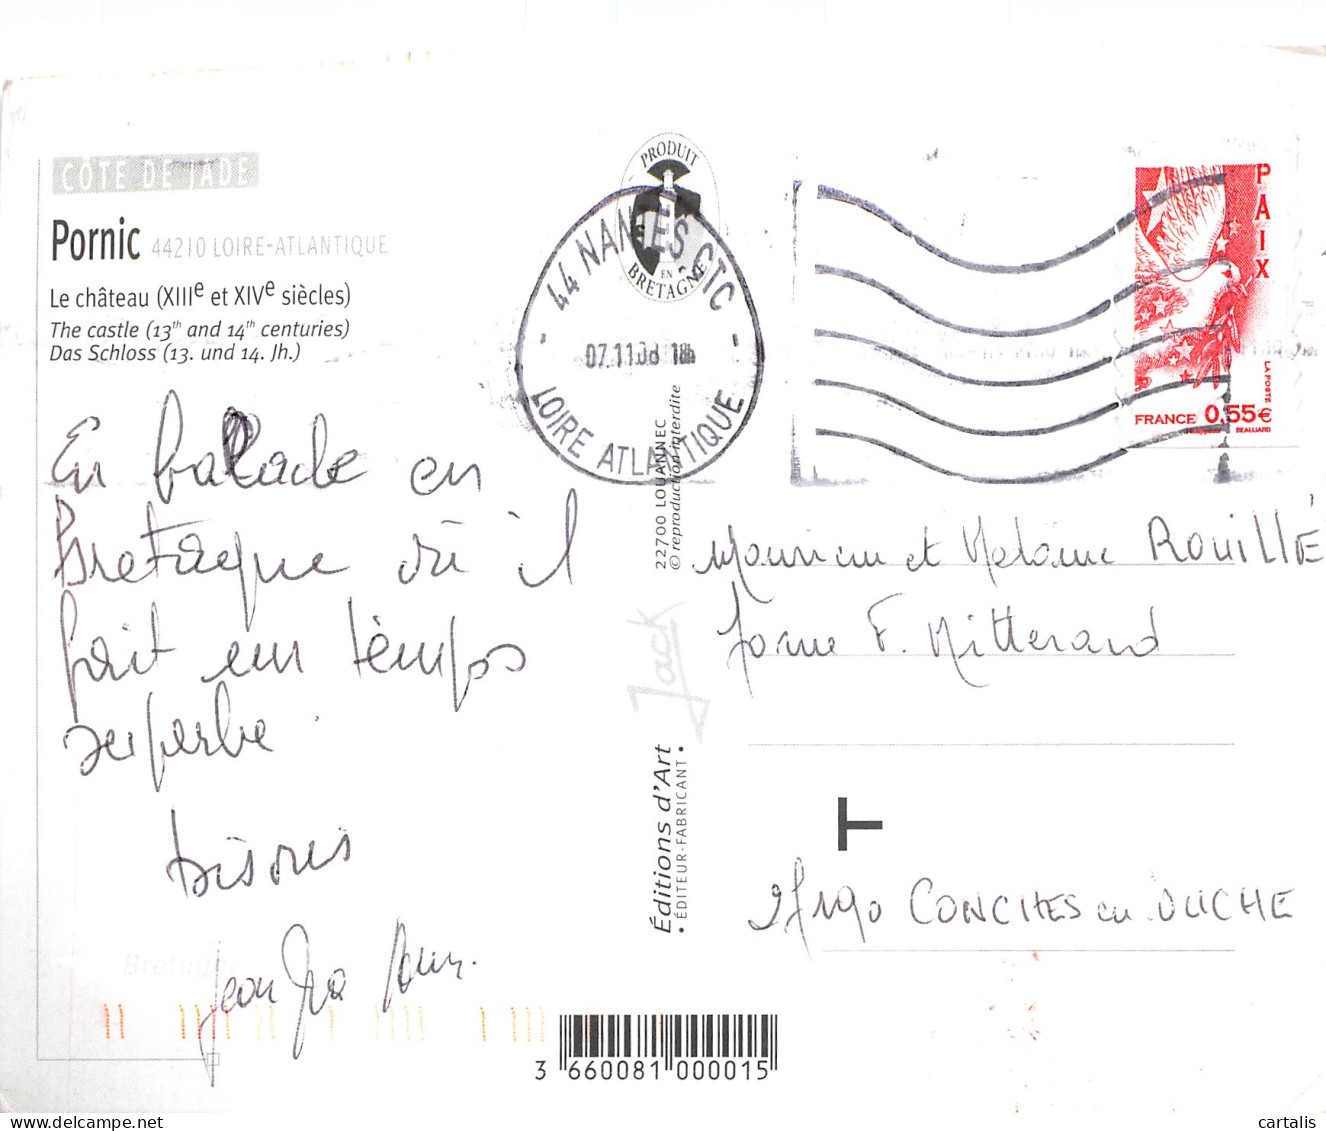 CÔTE DE JADE
Pornic 44210 LOIRE-ATLANTIQUE
Le château (XIIIe et XIVe siècles)
The castle (13th and 14th centuries)
Das Schloss (13. und 14. Jh.)
En balade en
Bretagne où il
fait un temps
superbe.
bisous
Jean
Bretagne
PRODUIT
EN
BRETAGNE
44 NANTES CTC
07.11.08 18h
LOIRE ATLANTIQUE
22700 LOUANNEC
© reproduction interdite
Jack
Éditions d'Art
• ÉDITEUR-FABRICANT •
PAIX
LA POSTE
FRANCE 0,55€
BEAUJARD
Monsieur et Madame ROUILLÉ
F. Mitterand
T
27190 CONCHES en OUCHE
3 660081 000015
cartalis